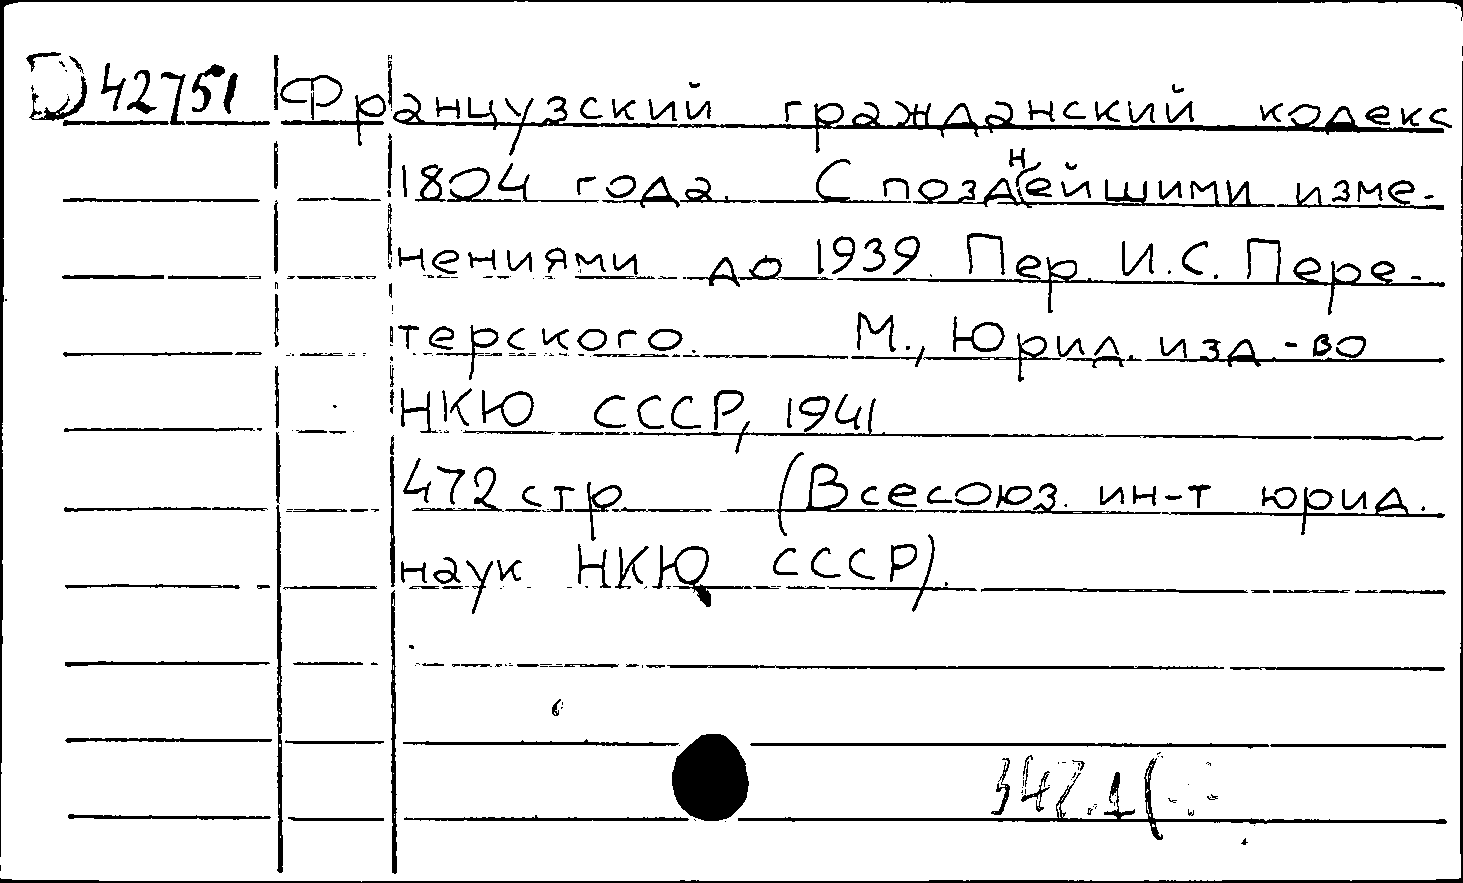 D 42751 Французский гражданский кодекс
1804 года. С позднейшими изме-
нениями до 1939. Пер. И.С. Пере-
терского. М., Юрид. изд.-во
НКЮ СССР, 1941
472 стр. (Всесоюз. ин-т юрид.
наук НКЮ СССР).
347.1(